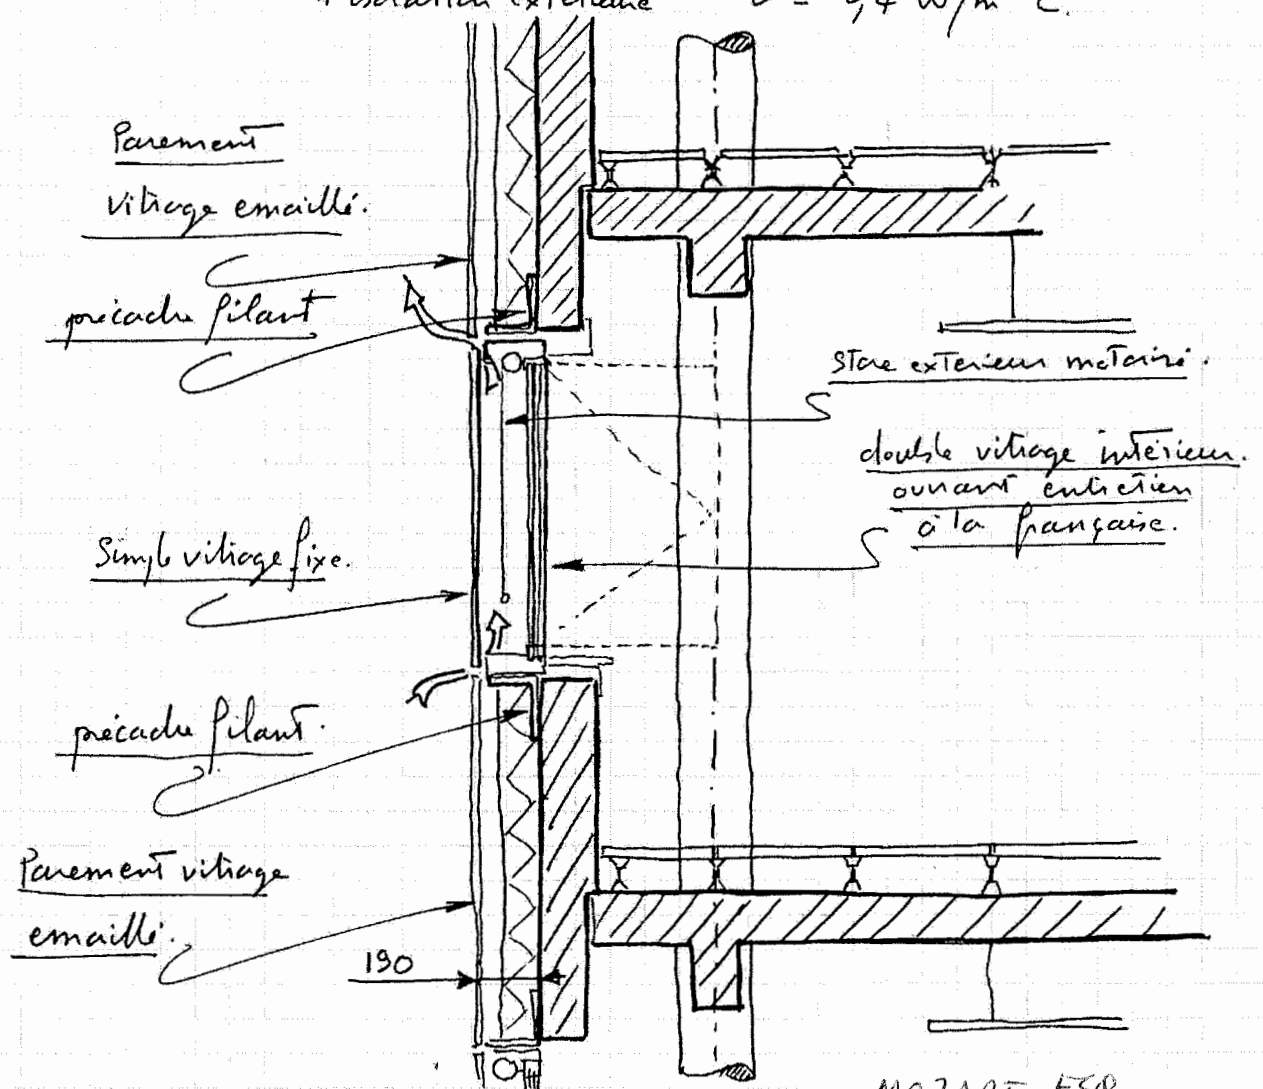 isolation extérieure U = 0,4 W/m² °C.
Parement
vitrage emaillé.
précadre filant
Store exterieur motorisé.
double vitrage intérieur.
ouvrant entretien
à la française.
Simple vitrage fixe.
précadre filant.
Parement vitrage
emaillé.
190
MOZART